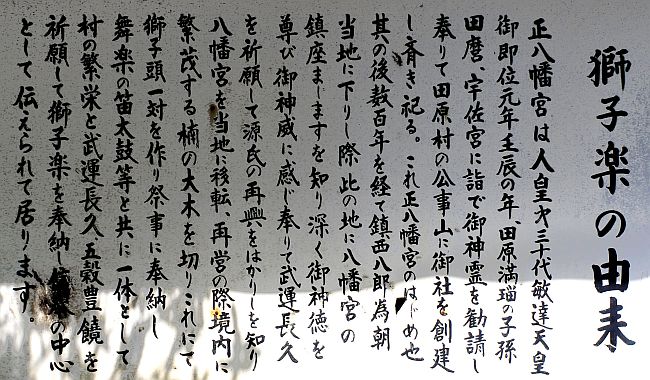 獅子楽の由来
正八幡宮は人皇才三十代敏達天皇
御即位元年壬辰の年、田原満瑙の子孫
田麿、宇佐宮に詣で御神霊を勧請し
奉りて田原村の公事山に御社を創建
し斉き祀る。これ正八幡宮のはじめ也
其の後数百年を経て鎮西八郎為朝
当地に下りし際此の地に八幡宮の
鎮座ましますを知り深く御神徳を
尊び御神威に感じ奉りて武運長久
を祈願して源氏の再興をはかりしを知り
八幡宮を当地に移転、再営の際境内に
繁茂する楠の大木を切りこれにて
獅子頭一対を作り祭事に奉納し
舞楽の笛太鼓等と共に一体として
村の繁栄と武運長久五穀豊饒を
祈願して獅子楽を奉納し の中心
として伝えられて居ります。